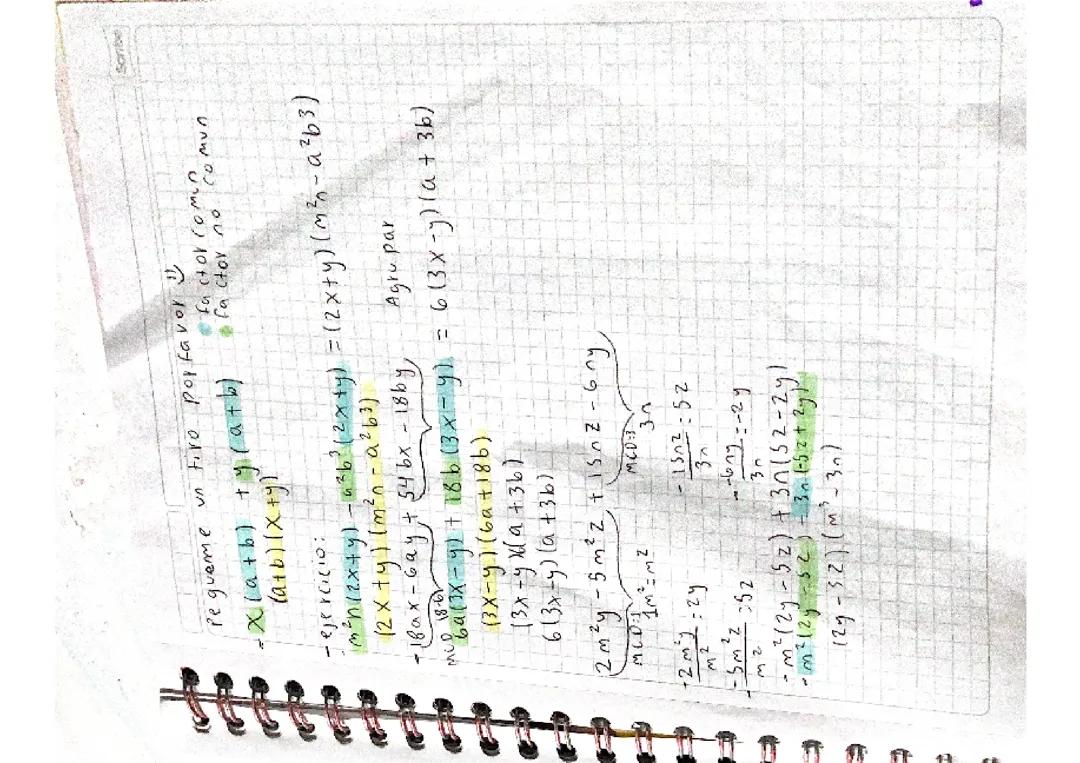 Scribe
Pegueme un tiro por favor :)
factor comun
factor no comun
- x (a+b) + y (a+b)
(a+b)(x+y)
- ejercicio:
m²n(2x+y) - a²b³(2x+y) = (2x+y)(m²n - a²b³)
(2x+y)(m²n - a²b³)
- 18ax - 6ay + 54bx - 18by Agrupar
6a(3x-y) + 18b(3x-y) = 6(3x-y)(a+3b)
(3x-y)(6a+18b)
(3x-y)(a+3b)
6(3x-y)(a+3b)
2m²y - 5m²z + 15nz - 6ny
MCD:1 MCD:3
1m²=m² 3n
2m²y/m² : 2y - 15nz/3n : 5z
- 5m²z/m² : 5z - 6ny/3n : -2y
- m²(2y-5z) + 3n(5z-2y)
- m²(2y-5z) - 3n(-5z+2y)
(2y-5z)(m²-3n)